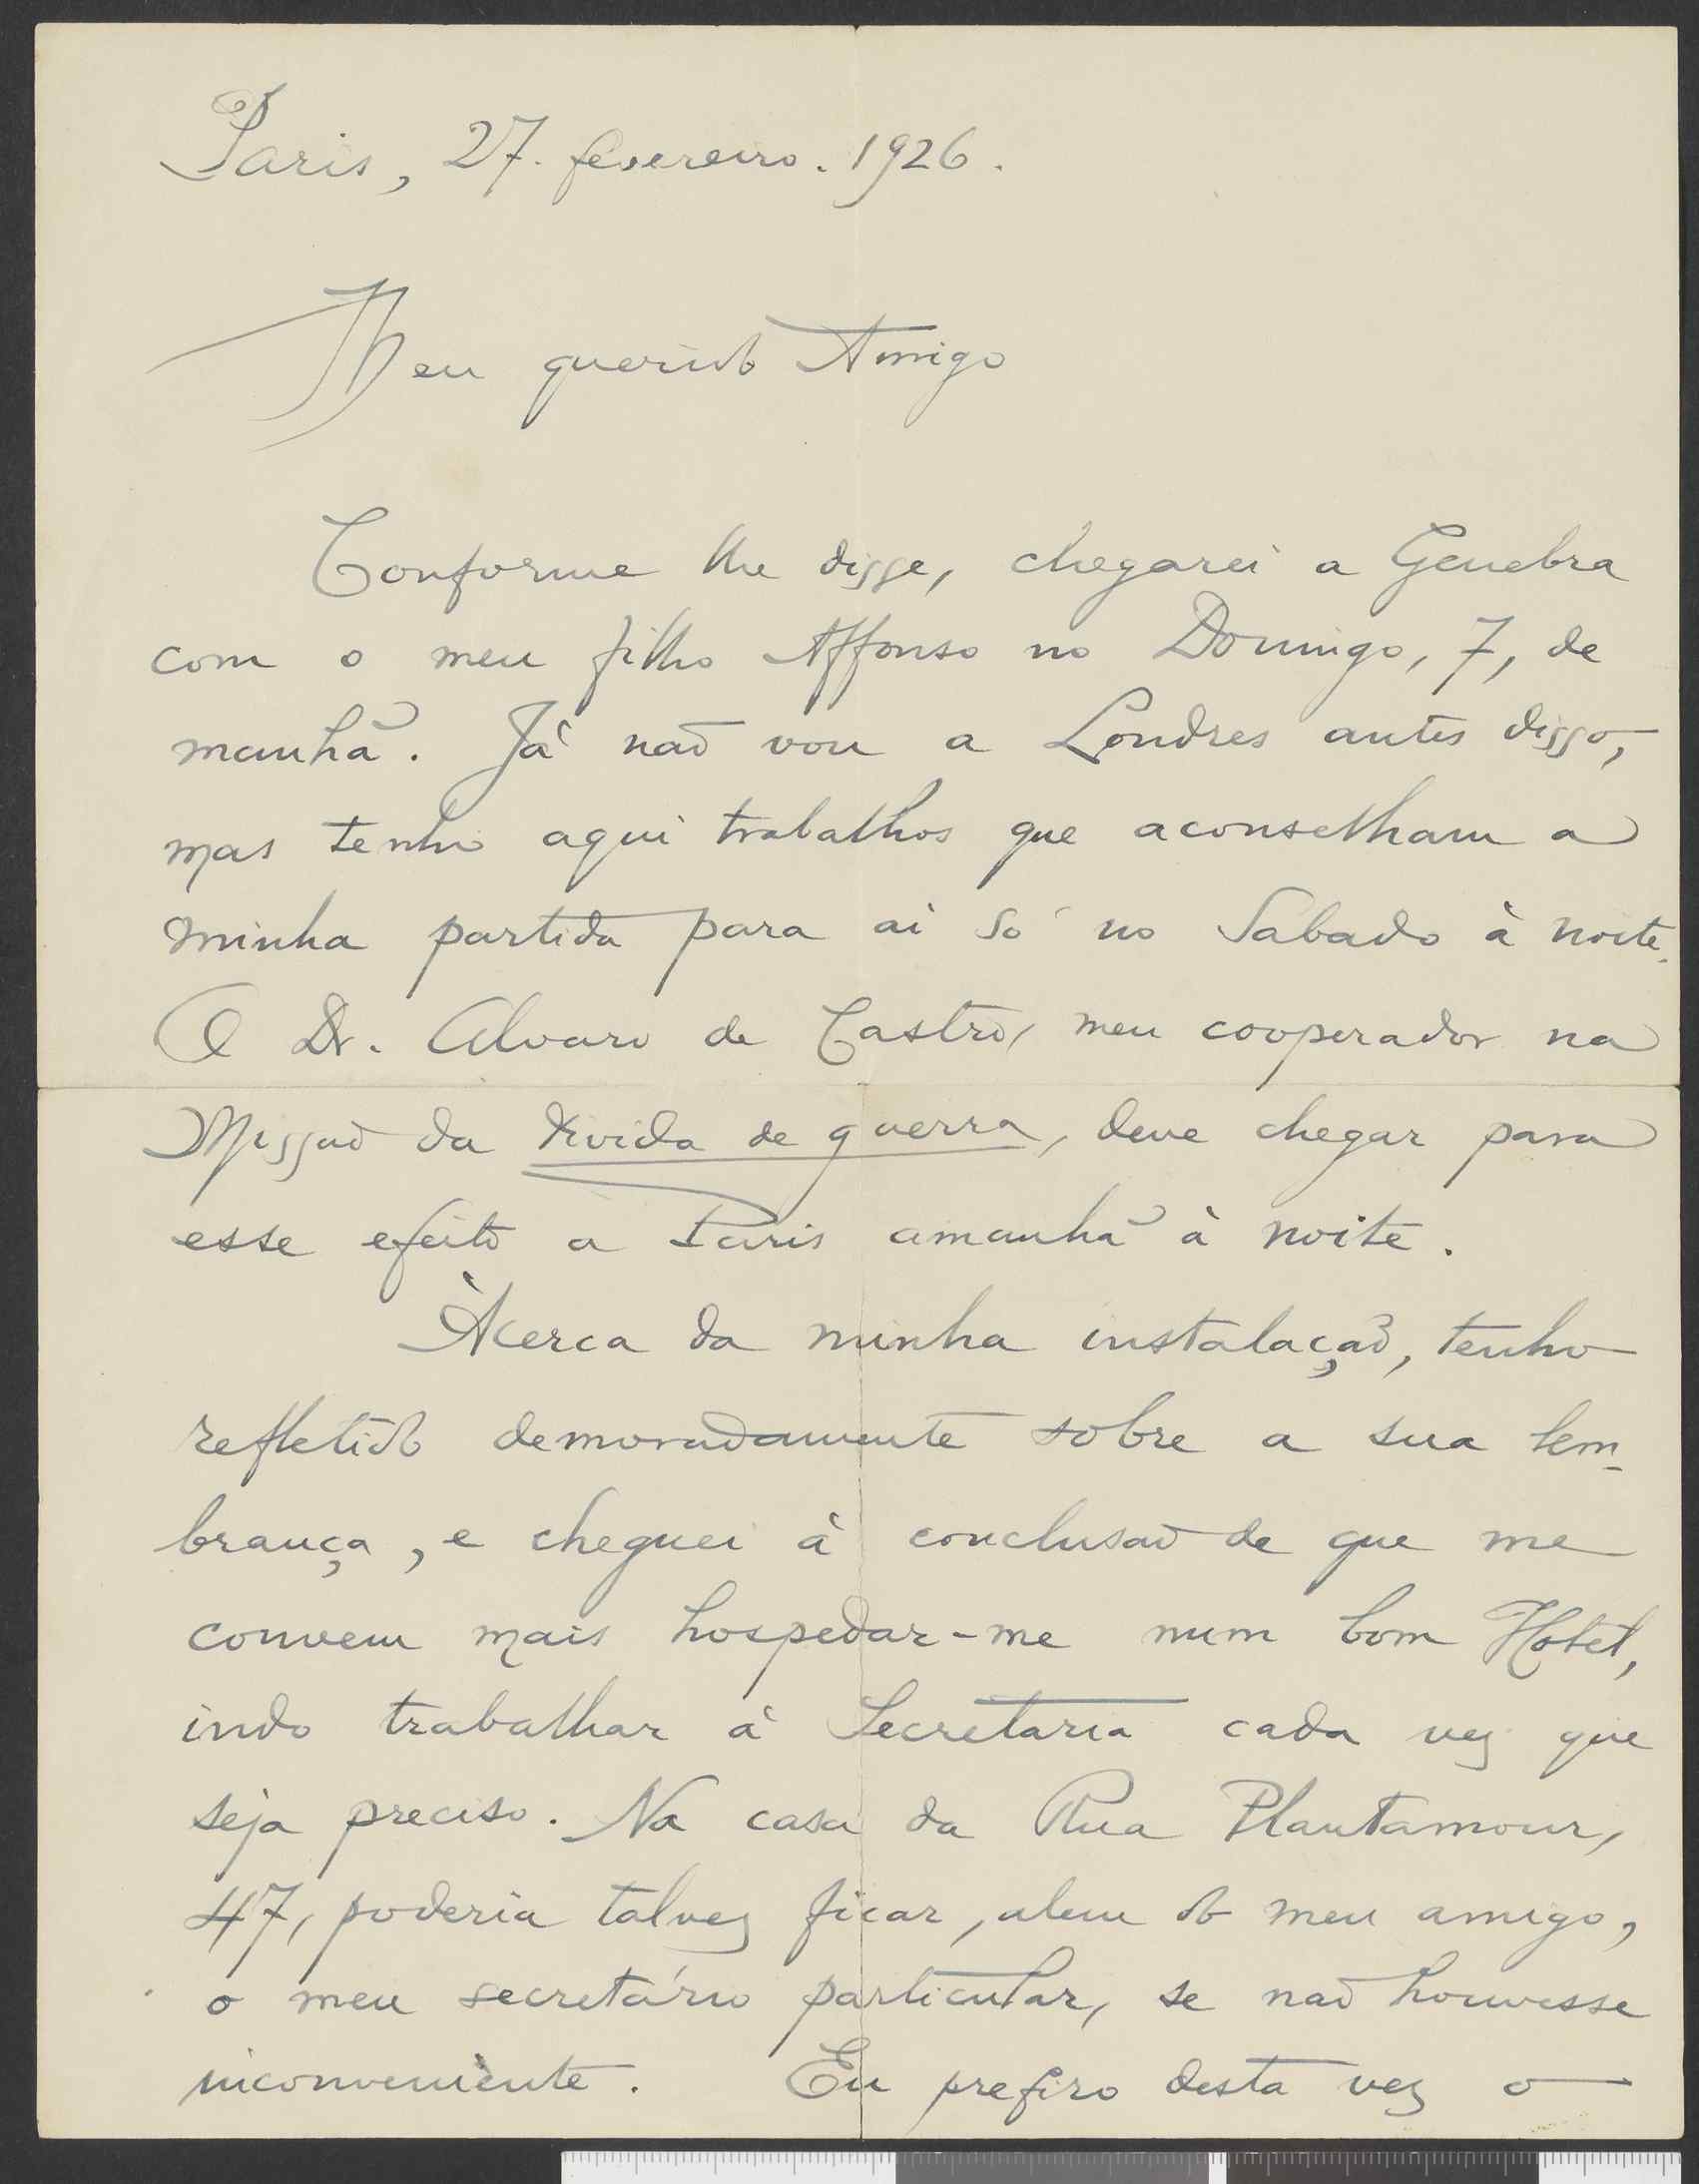 Paris, 27. fevereiro. 1926.
Meu querido Amigo
Conforme lhe disse, chegarei a Genebra
com o meu filho Affonso no Domingo, 7, de
manhã. Já não vou a Londres antes disso,
mas tenho aqui trabalhos que aconselham a
minha partida para aí só no Sabado à noite.
O Dr. Alvaro de Castro, meu cooperador na
Missão da divida de guerra, deve chegar para
esse efeito a Paris amanhã à noite.
Àcerca da minha instalação, tenho
refletido demoradamente sobre a sua lem-
brança, e cheguei à conclusão de que me
convem mais hospedar-me num bom Hotel,
indo trabalhar à Secretaria cada vez que
seja preciso. Na casa da Rua Plantamour,
47, poderia talvez ficar, alem do meu amigo,
o meu secretário particular, se não houvesse
inconveniente. Eu prefiro desta vez o